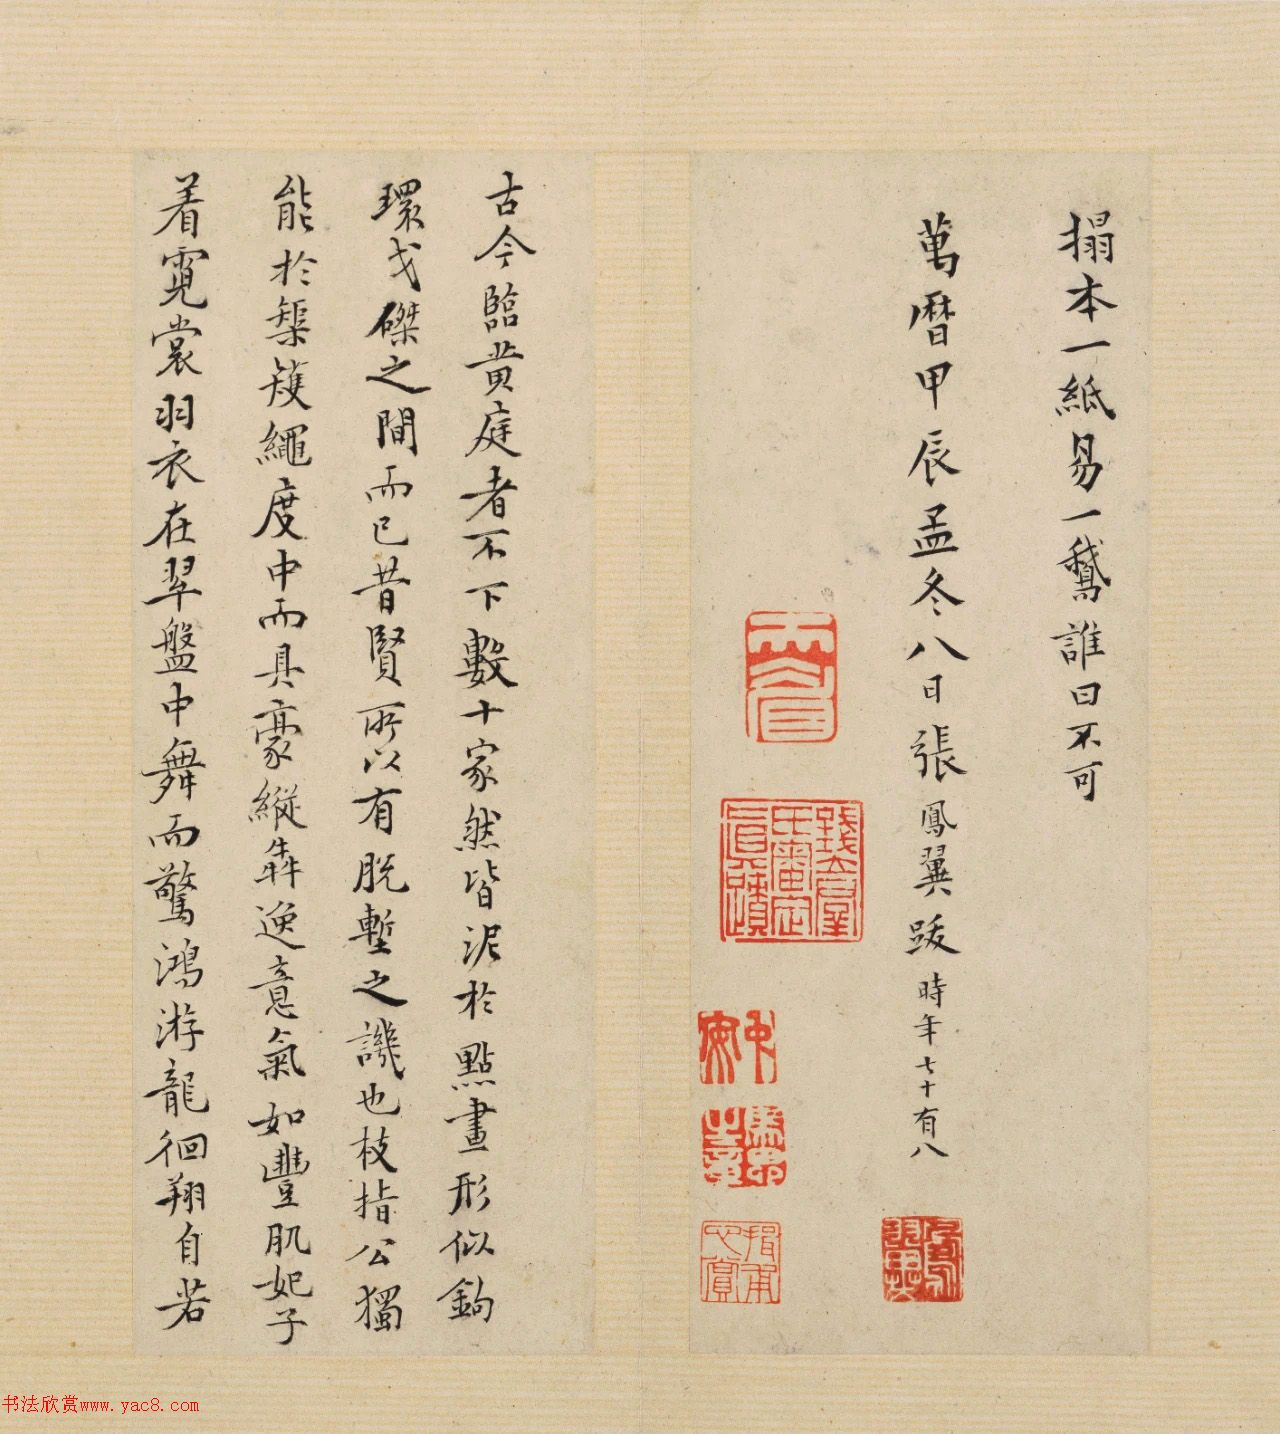 搨本一紙易一鵝誰曰不可
萬曆甲辰孟冬八日張鳳翼跋時年七十有八
古今臨黄庭者不下數十家然皆泥於點畫形似鉤
環戈磔之間而已昔賢所以有脱塹之譏也枝指公獨
能於榘矱繩度中而具豪縱犇逸意氣如豐肌妃子
着霓裳羽衣在翠盤中舞而驚鴻游龍徊翔自若
錢章羣氏審定真蹟
书法欣赏www.yac8.com